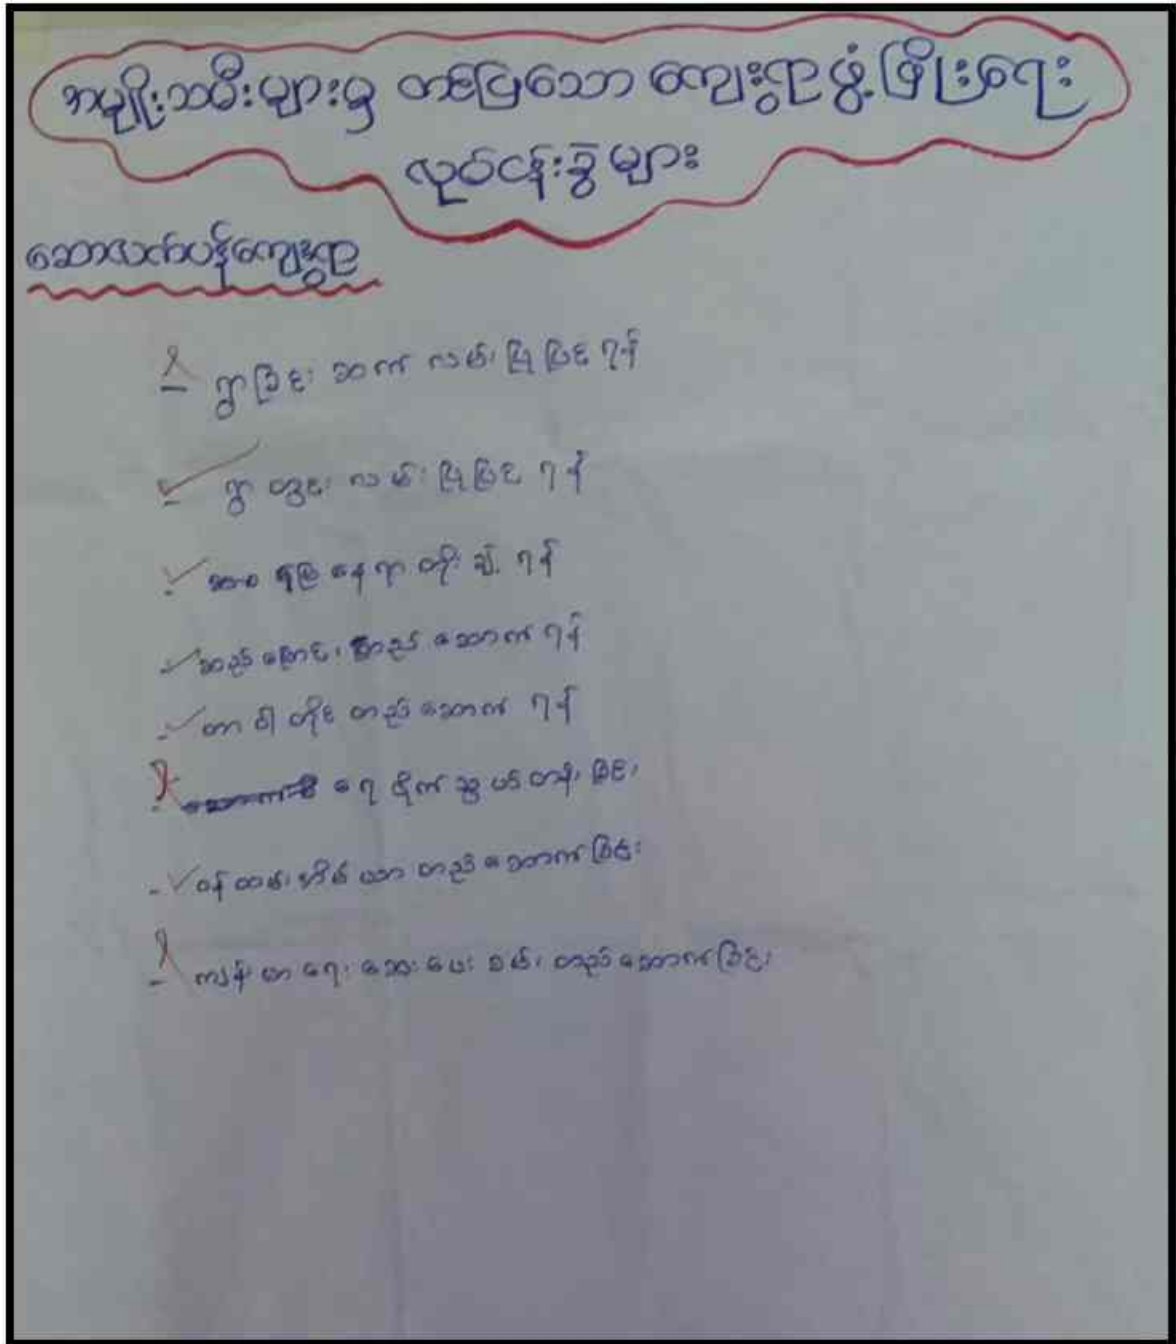 အမျိုးသမီးများမှ တင်ပြသော ကျေးရွာဖွံ့ဖြိုးရေး
လုပ်ငန်းခွဲများ
ဆောလက်ပန်ကျေးရွာ
- ရွာချင်း ဆက် လမ်း ပြုပြင် ရန်
- ရွာ တွင်း လမ်း ပြုပြင် ရန်
- နေရာ တိုး ချဲ့ ရန်
- ဆည်မြောင်း တည် ဆောက် ရန်
- တာ ဝါ တိုင် တည် ဆောက် ရန်
- ရေ ပိုက် သွယ် တန်း ခြင်း
- ဝန် ထမ်း အိမ် ယာ တည် ဆောက် ခြင်း
- ကျန်း မာ ရေး ဆေး ပေး ခန်း တည် ဆောက် ခြင်း